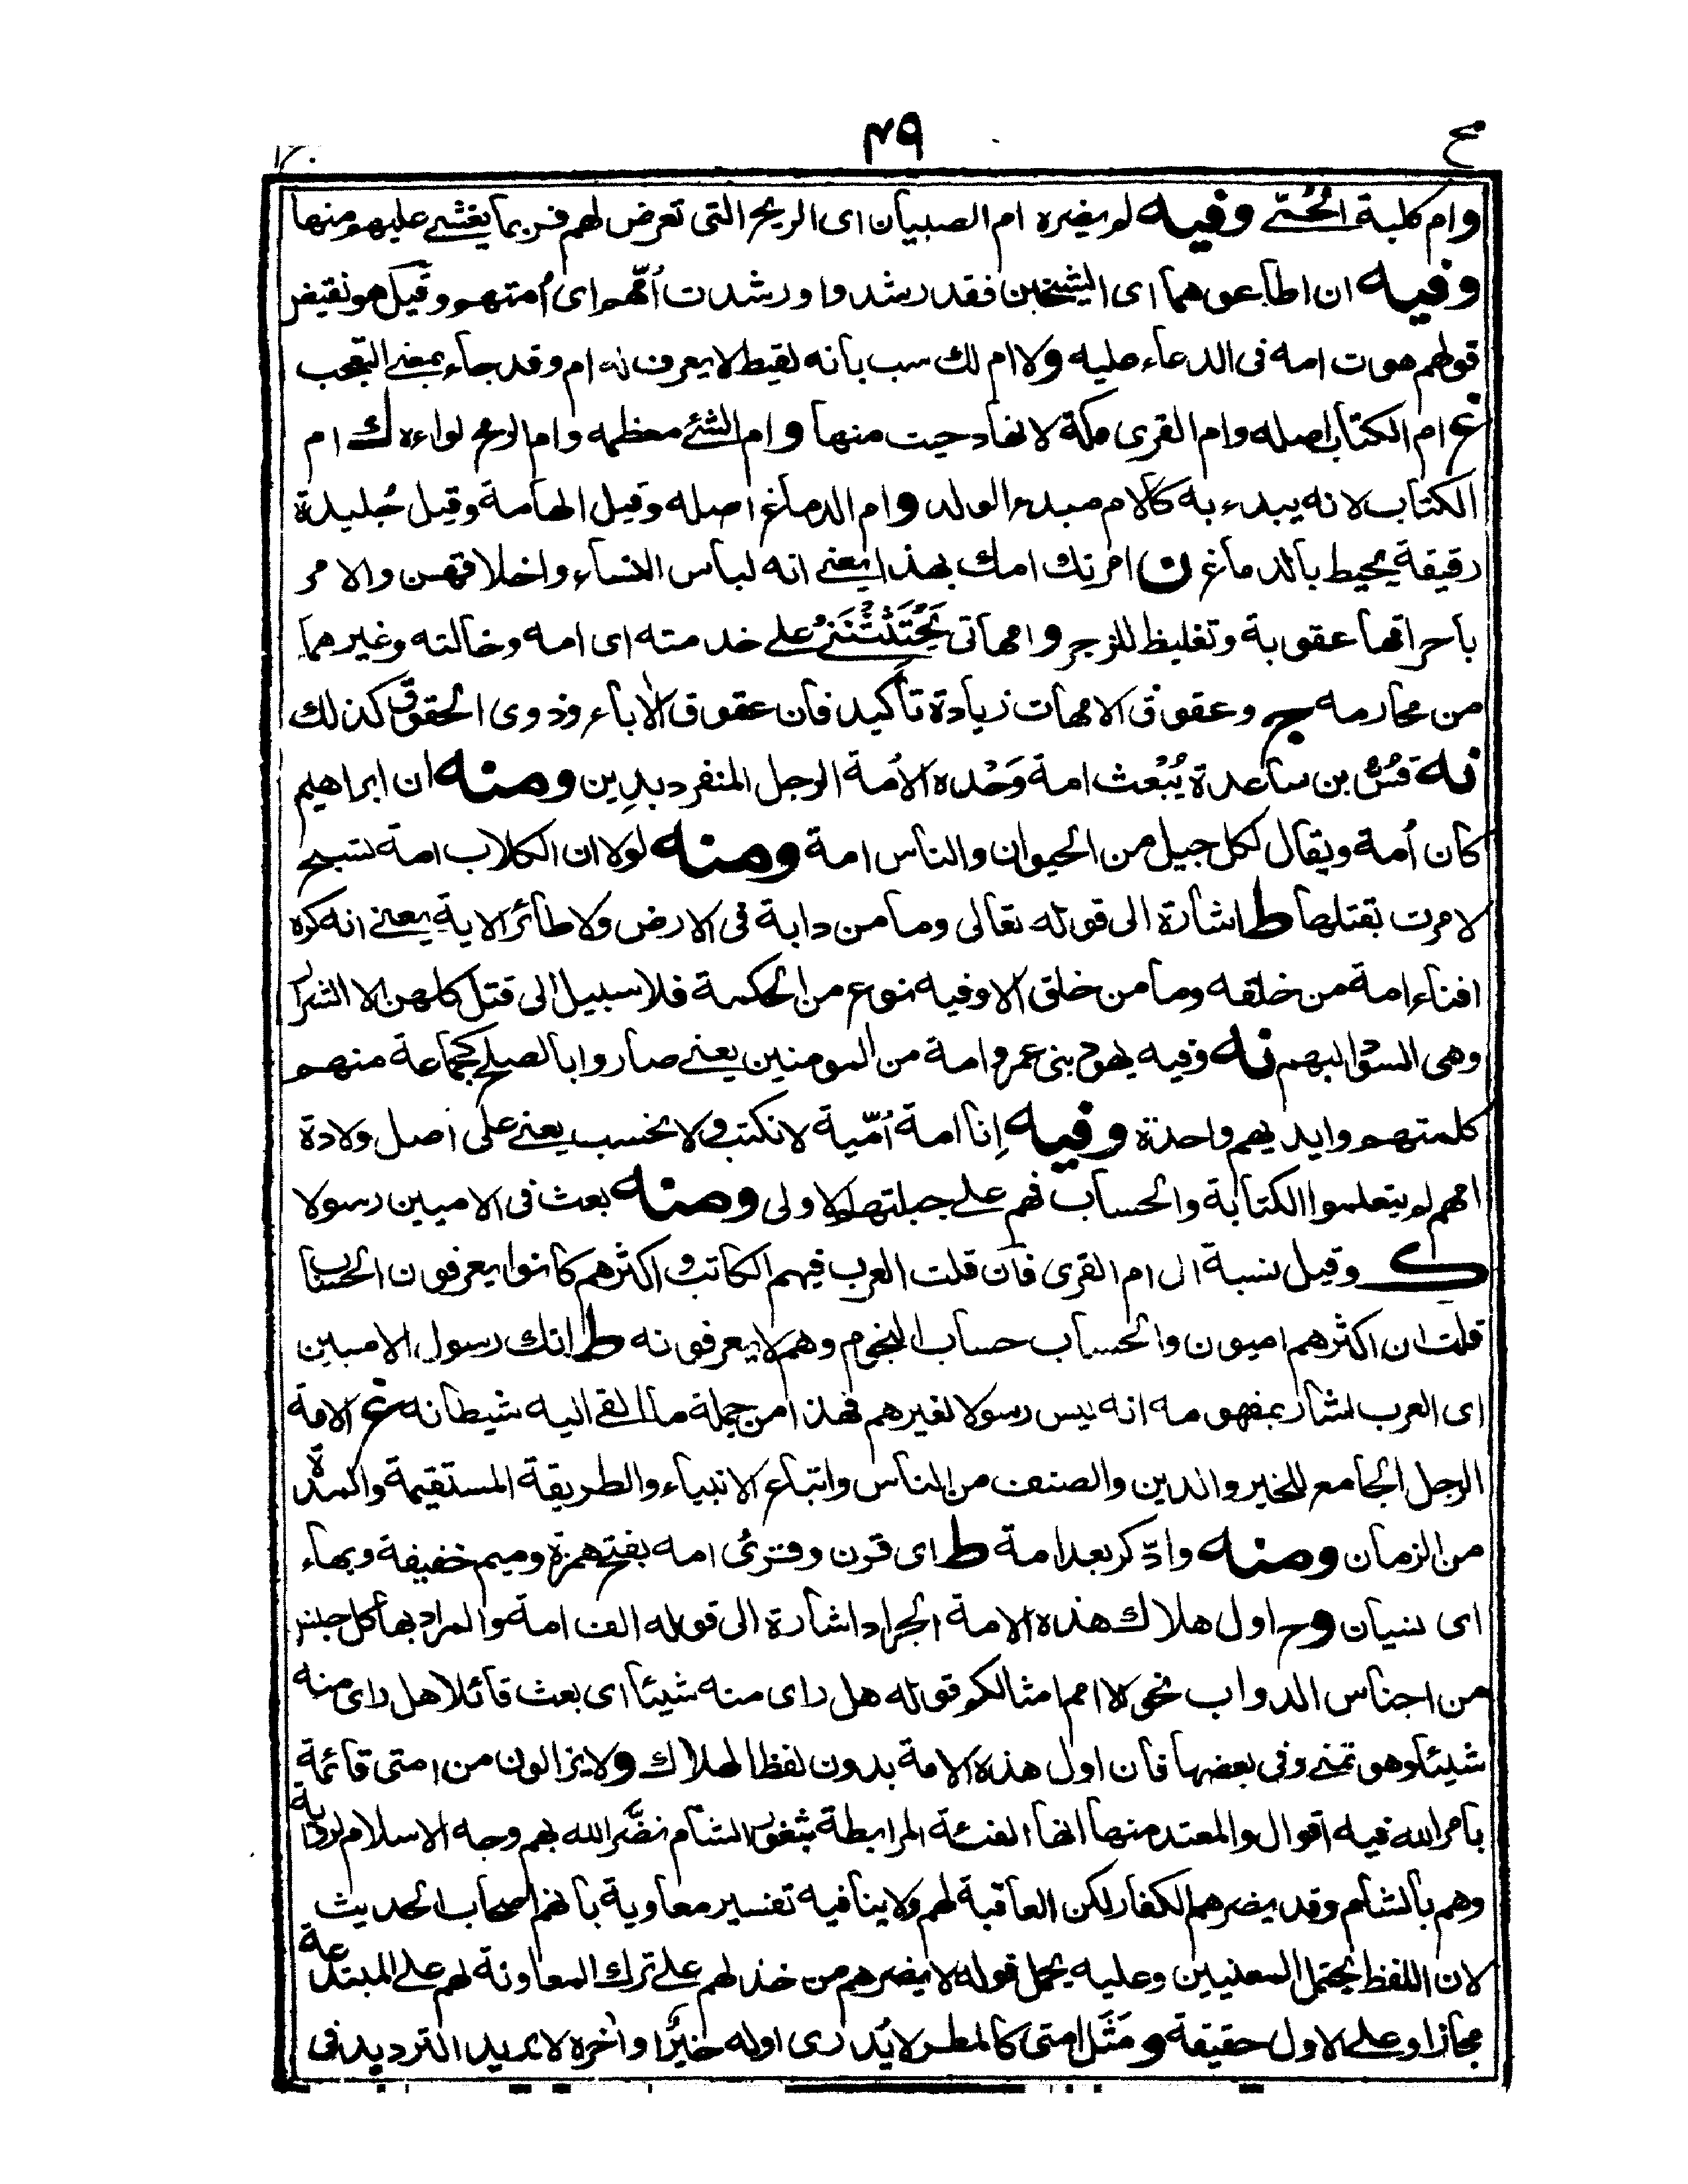 مح
٤٩
وام كلبة الحُمّى وفيه لم يضره ام الصبيان اى الريح التى تعرض لهم فربما يغشى عليهم منها
وفيه ان اطاعوهما اى الشيخين فقد رشدوا ورشدت اُمّهم اى اُمتهم وقيل هو نقيض
قولهم هوت امه فى الدعاء عليه ولا ام لك سب بانه لقيط لا يعرف له ام وقد جاء بمعنى التعجب
غ ام الكتاب اصله وام القرى مكة لانها دحيت منها وام الشئ معظمه وام الرمح لواءه ك ام
الكتاب لانه يبدء به كالام مبدء الولد وام الدماغ اصله وقيل الهامة وقيل جُليدة
رقيقة يحيط بالدماغ ن امرتك امك بهذا يعنى انه لباس النساء واخلاقهن والامر
باحراقها عقوبة وتغليظ للزجر وامهاتى يَحْتَثِثْنَنى على خدمته اى امه وخالته وغيرهما
من محارمه ج وعقوق الامهات زيادة تأكيد فان عقوق الاباء وذوى الحقوق كذلك
نه قُسّ بن ساعدة يُبْعث امة وَحْده الاُمة الرجل المنفرد بدِين ومنه ان ابراهيم
كان اُمة ويقال لكل جيل من الحيوان والناس امة ومنه لولا ان الكلاب امة تسبح
لامرت بقتلها ط اشارة الى قوله تعالى وما من دابة فى الارض ولا طائر الاية يعنى انه كره
افناء امة من خلقه وما من خلق الا وفيه نوع من الحكمة فلا سبيل الى قتل كلهن الا الشرار
وهى السود البهم نه وفيه يهود بنى عمرو امة من المومنين يعنى صاروا بالصلح كجماعة منهم
كلمتهم وايديهم واحدة وفيه إنا امة اُمّية لا نكتب ولا نحسب يعنى على اصل ولادة
امهم لم يتعلموا الكتابة والحساب فهم على جبلتهم الاولى ومنه بعث فى الاميين رسولا
ك وقيل نسبة الى ام القرى فان قلت العرب فيهم الكاتب واكثرهم كانوا يعرفون الحساب
قلت ان اكثرهم اميون والحساب حساب النجوم وهم لا يعرفونه ط انك رسول الاميين
اى العرب اشار بمفهومه انه ليس رسولا لغيرهم فهذا من جملة ما القى اليه شيطانه غ الامة
الرجل الجامع للخير والدين والصنف من الناس واتباع الانبياء والطريقة المستقيمة والمدة
من الزمان ومنه وادّكر بعد امة ط اى قرن وقرئ امه بفتح همزة وميم خفيفة وبهاء
اى نسيان وح اول هلاك هذه الامة الجراد اشارة الى قوله الف امة والمراد بها كل جنس
من اجناس الدواب نحو الا امم امثالكم قوله هل راى منه شيئا اى بعث قائلا هل راى منه
شيئا وهو تمنى وفى بعضها فان اول هذه الامة بدون لفظ الهلاك ولا يزالون من امتى قائمة
بامر الله فيه اقوال والمعتد منها انها الفئة المرابطة بثغور الشام نضّر الله بهم وجه الاسلام لرواية
وهم بالشام وقد يضرهم الكفار لكن العاقبة لهم ولا ينافيه تفسير معاوية بانهم اصحاب الحديث
لان اللفظ يحتمل المعنيين وعليه يحمل قوله لا يضرهم من خذلهم على ترك المعاونة لهم على المبتدعة
مجازا وعلى الاول حقيقة ومَثَل امتى كالمطر لا يُدرى اوله خيرٌ ا واٰخره لا يريد الترديد فى